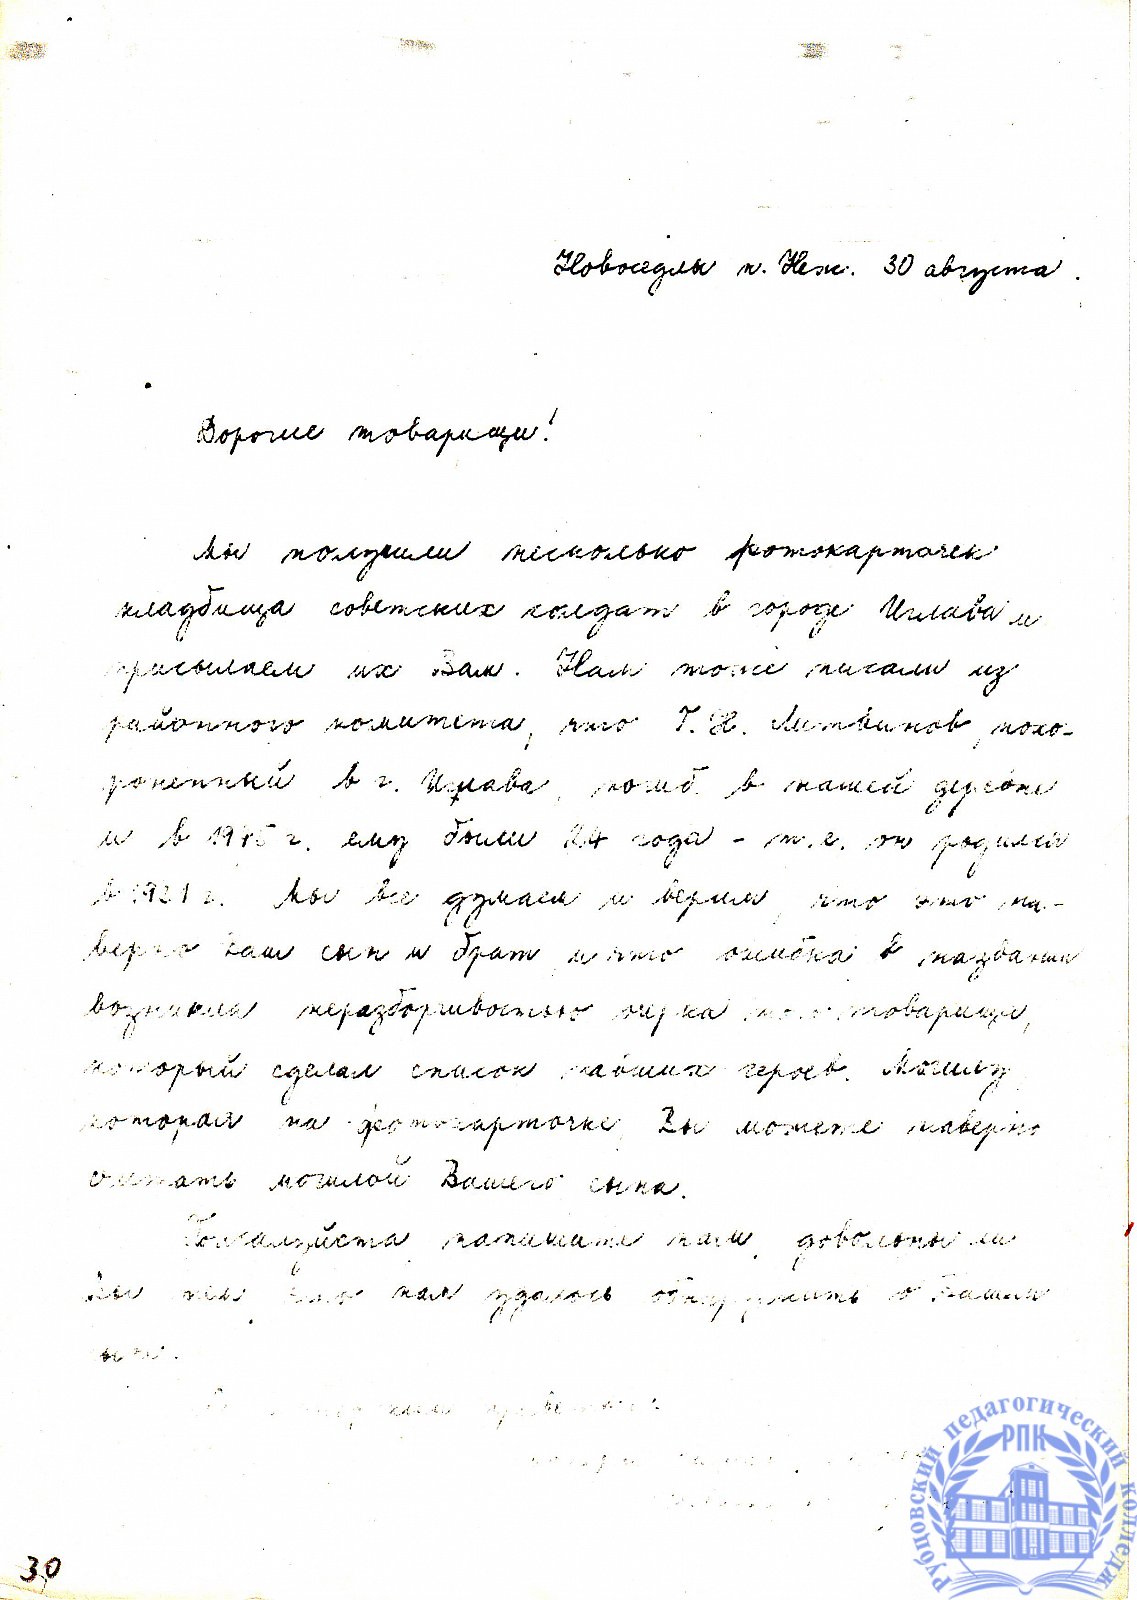 Новоседлы н. Неж. 30 августа.
Дорогие товарищи!
Мы получили несколько фотокарточек
кладбища советских солдат в городе Иглава и
присылаем их Вам. Нам тоже писали из
районного комитета, что Г. Н. Литвинов, похо-
роненный в г. Иглава, погиб в нашей деревне
и в 1945 г. ему были 24 года - т.е. он родился
в 1921 г. Мы все думаем и верим, что это на-
верно Ваш сын и брат и что ошибка в названии
возникла неразборчивостью товарища,
который сделал список павших героев. Могилу
которая на фотокарточке, Вы можете наверно
считать могилой Вашего сына.
Пожалуйста напишите нам, довольны ли
Вы тем что нам удалось обнаружить о Вашем
сыне.
приветом
30
Рубцовский педагогический колледж
РПК